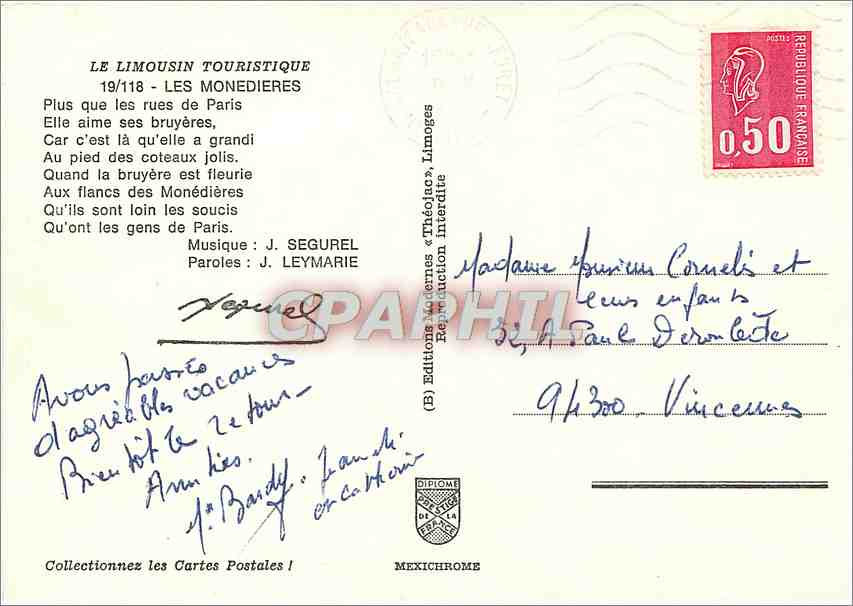 LE LIMOUSIN TOURISTIQUE
19/118 - LES MONEDIERES
Plus que les rues de Paris
Elle aime ses bruyères,
Car c'est là qu'elle a grandi
Au pied des coteaux jolis.
Quand la bruyère est fleurie
Aux flancs des Monédières
Qu'ils sont loin les soucis
Qu'ont les gens de Paris.
Musique : J. SEGUREL
Paroles : J. LEYMARIE
Segurel
Avons passés
d'agréables vacances
Bientôt le retour_
Amitiés.
Mr Bardy. Jean
et Catherine
Collectionnez les Cartes Postales !
(B) Editions Modernes «Théojac», Limoges
Reproduction interdite
DIPLOME
PRESTIGE
DE LA
FRANCE
MEXICHROME
POSTES
REPUBLIQUE FRANÇAISE
0,50
Madame Monsieur Cornelis et
leurs enfants
32, A Paul Deroulède
94300 - Vincennes
CPAPHIL